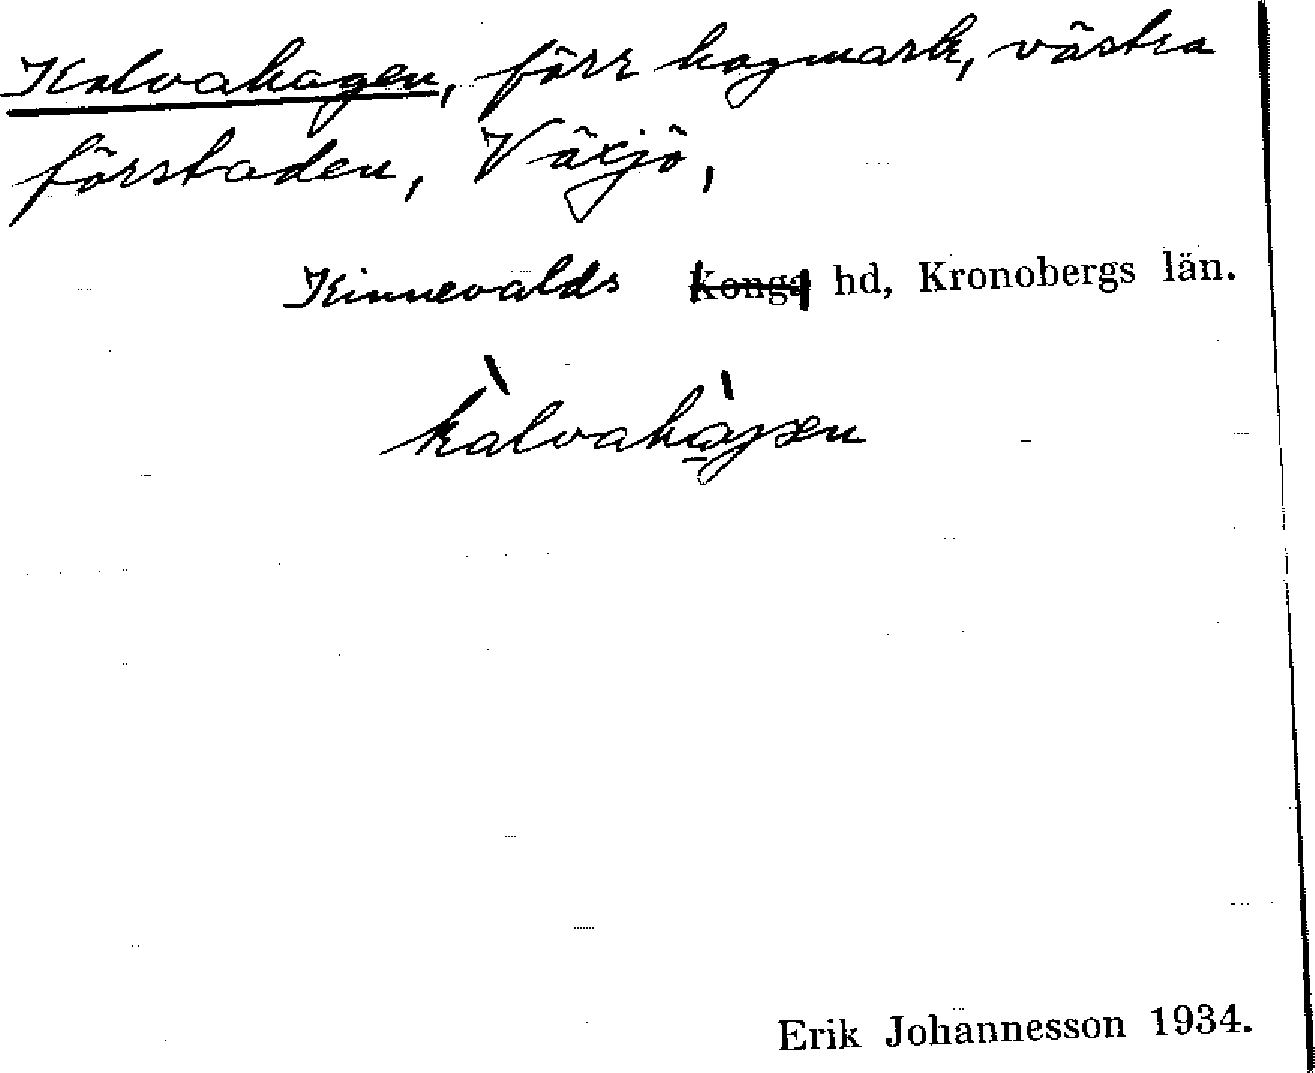 Kalvahagen, förr hagmark, västra
förstaden, Växjö,
Kinnevalds ~~Konga~~ hd, Kronobergs län.
kàlvahàgen
Erik Johannesson 1934.